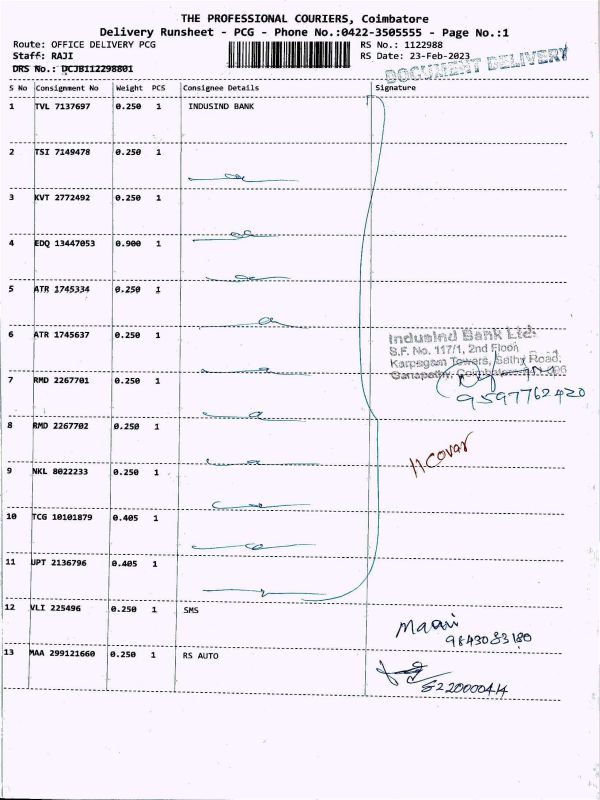 THE PROFESSIONAL COURIERS, Coimbatore
Delivery Runsheet - PCG - Phone No.:0422-3505555 - Page No.:1
Route: OFFICE DELIVERY PCG
RS No.: 1122988
Staff: RAJI
RS Date: 23-Feb-2023
DRS No.: DCJB112298801
DOCUMENT DELIVERY
S No Consignment No Weight PCS Consignee Details Signature
1 TVL 7137697 0.250 1 INDUSIND BANK
2 TSI 7149478 0.250 1
3 KVT 2772492 0.250 1
4 EDQ 13447053 0.900 1
5 ATR 1745334 0.250 1
6 ATR 1745637 0.250 1
IndusInd Bank Ltd.
S.F. No. 117/1, 2nd Floor,
Karpagam Towers, Sathy Road,
Ganapathy, Coimbatore
7 RMD 2267701 0.250 1
9597762420
8 RMD 2267702 0.250 1
11 Covar
9 NKL 8022233 0.250 1
10 TCG 10101879 0.405 1
11 UPT 2136796 0.405 1
12 VLI 225496 0.250 1 SMS
Maari
9843083180
13 MAA 299121660 0.250 1 RS AUTO